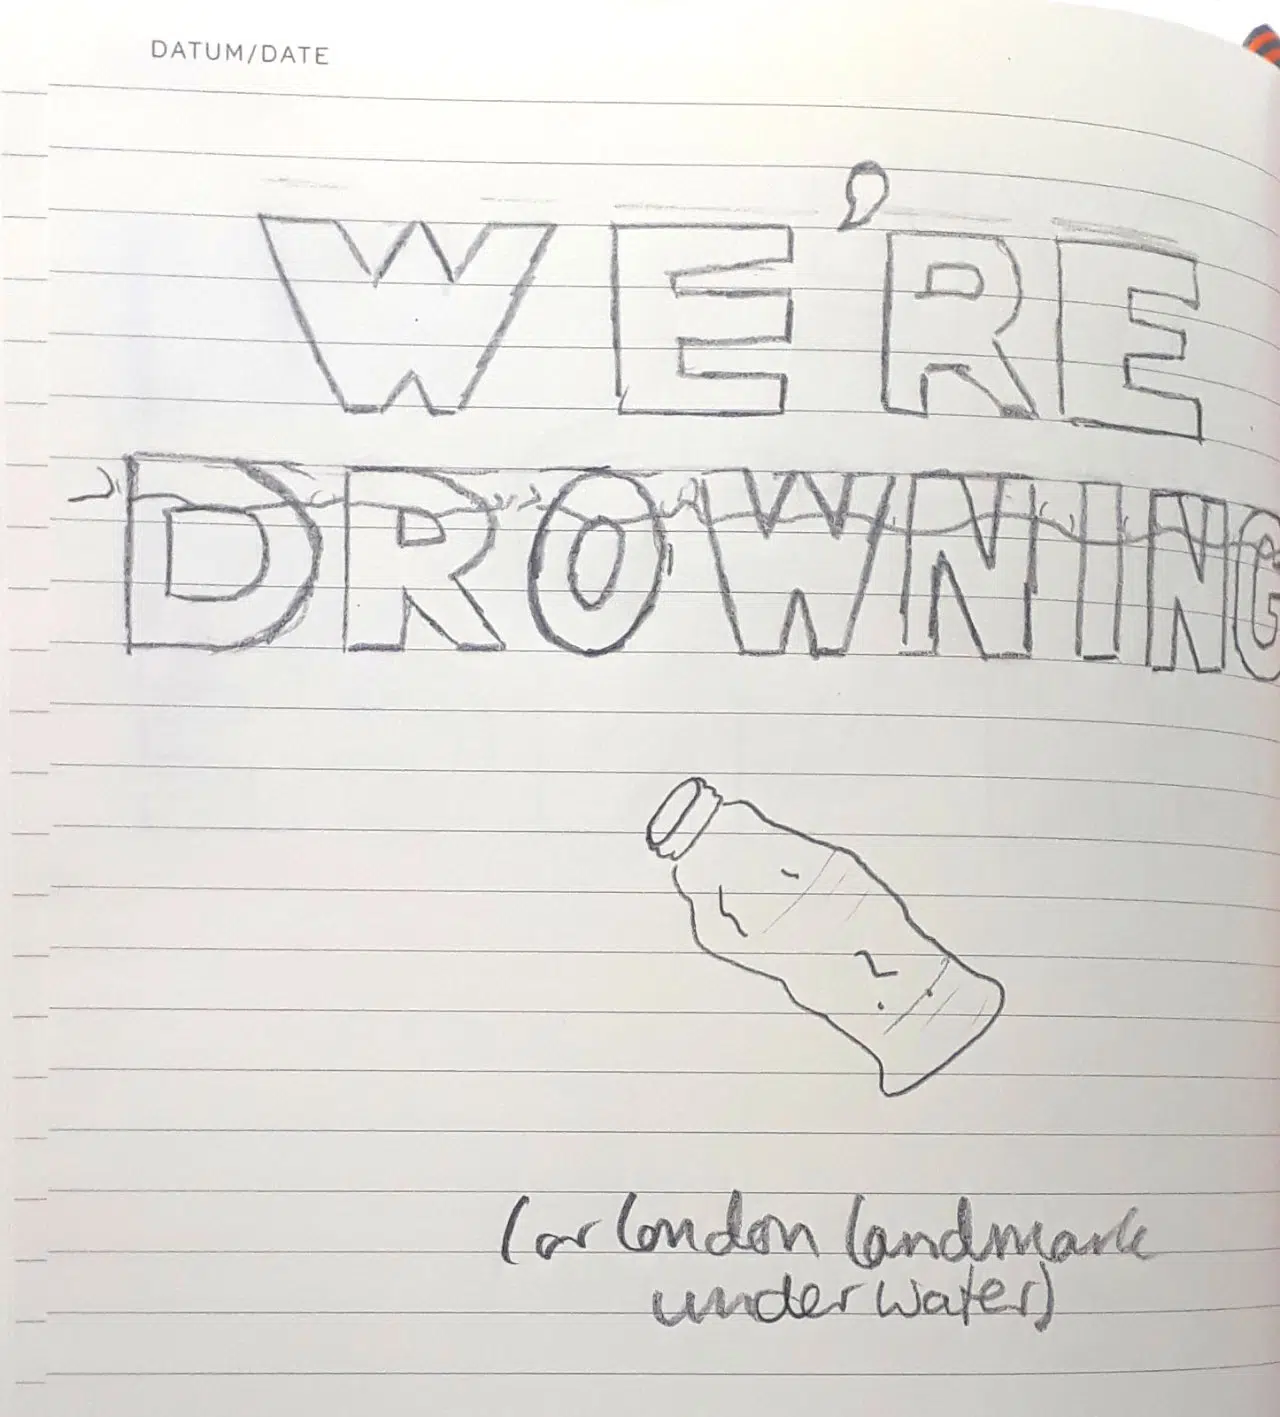 DATUM/DATE
WE'RE
DROWNING
(or London landmark
underwater)